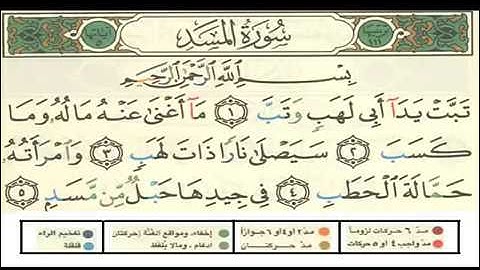 سُورَةُ المَسَدِ
بِسْمِ اللَّهِ الرَّحْمَٰنِ الرَّحِيمِ
تَبَّتْ يَدَآ أَبِى لَهَبٍ وَتَبَّ ١ مَآ أَغْنَىٰ عَنْهُ مَالُهُ وَمَا
كَسَبَ ٢ سَيَصْلَىٰ نَارًا ذَاتَ لَهَبٍ ٣ وَامْرَأَتُهُ
حَمَّالَةَ الْحَطَبِ ٤ فِى جِيدِهَا حَبْلٌ مِّن مَّسَدٍ ٥
مدّ ٦ حركات لزوماً مدّ ٢ أو ٤ أو ٦ جوازاً إخفاء، ومواقع الغنّة (حركتان) تفخيم الراء
مدّ واجب ٤ أو ٥ حركات مدّ حركتان إدغام، وما لا يُلفظ قلقلة